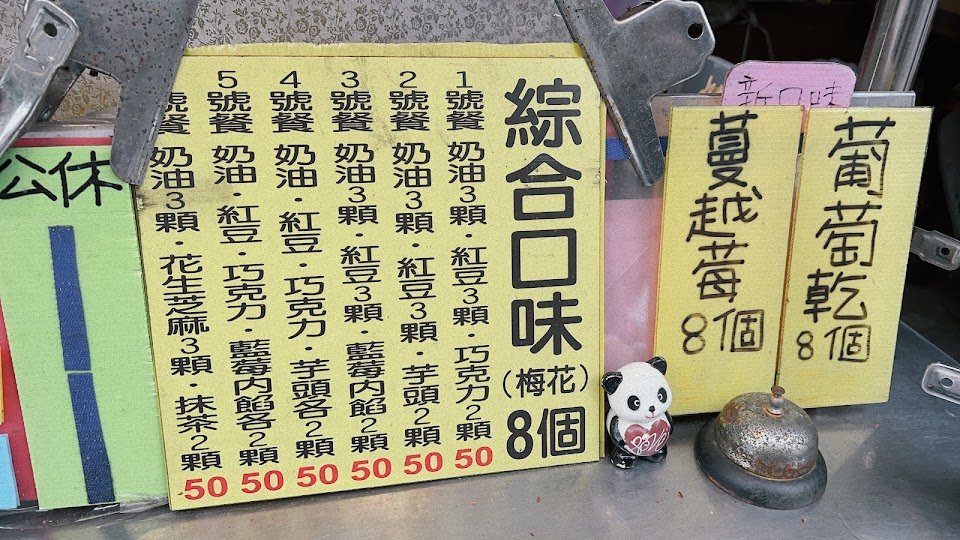 新口味
葡萄乾8個
蔓越莓8個
綜合口味(梅花)8個
1號餐 奶油3顆・紅豆3顆・巧克力2顆 50
2號餐 奶油3顆・紅豆3顆・芋頭2顆 50
3號餐 奶油3顆・紅豆3顆・藍莓內餡2顆 50
4號餐 奶油・紅豆・巧克力・芋頭各2顆 50
5號餐 奶油・紅豆・巧克力・藍莓內餡各2顆 50
號餐 奶油3顆・花生芝麻3顆・抹茶2顆 50
公休